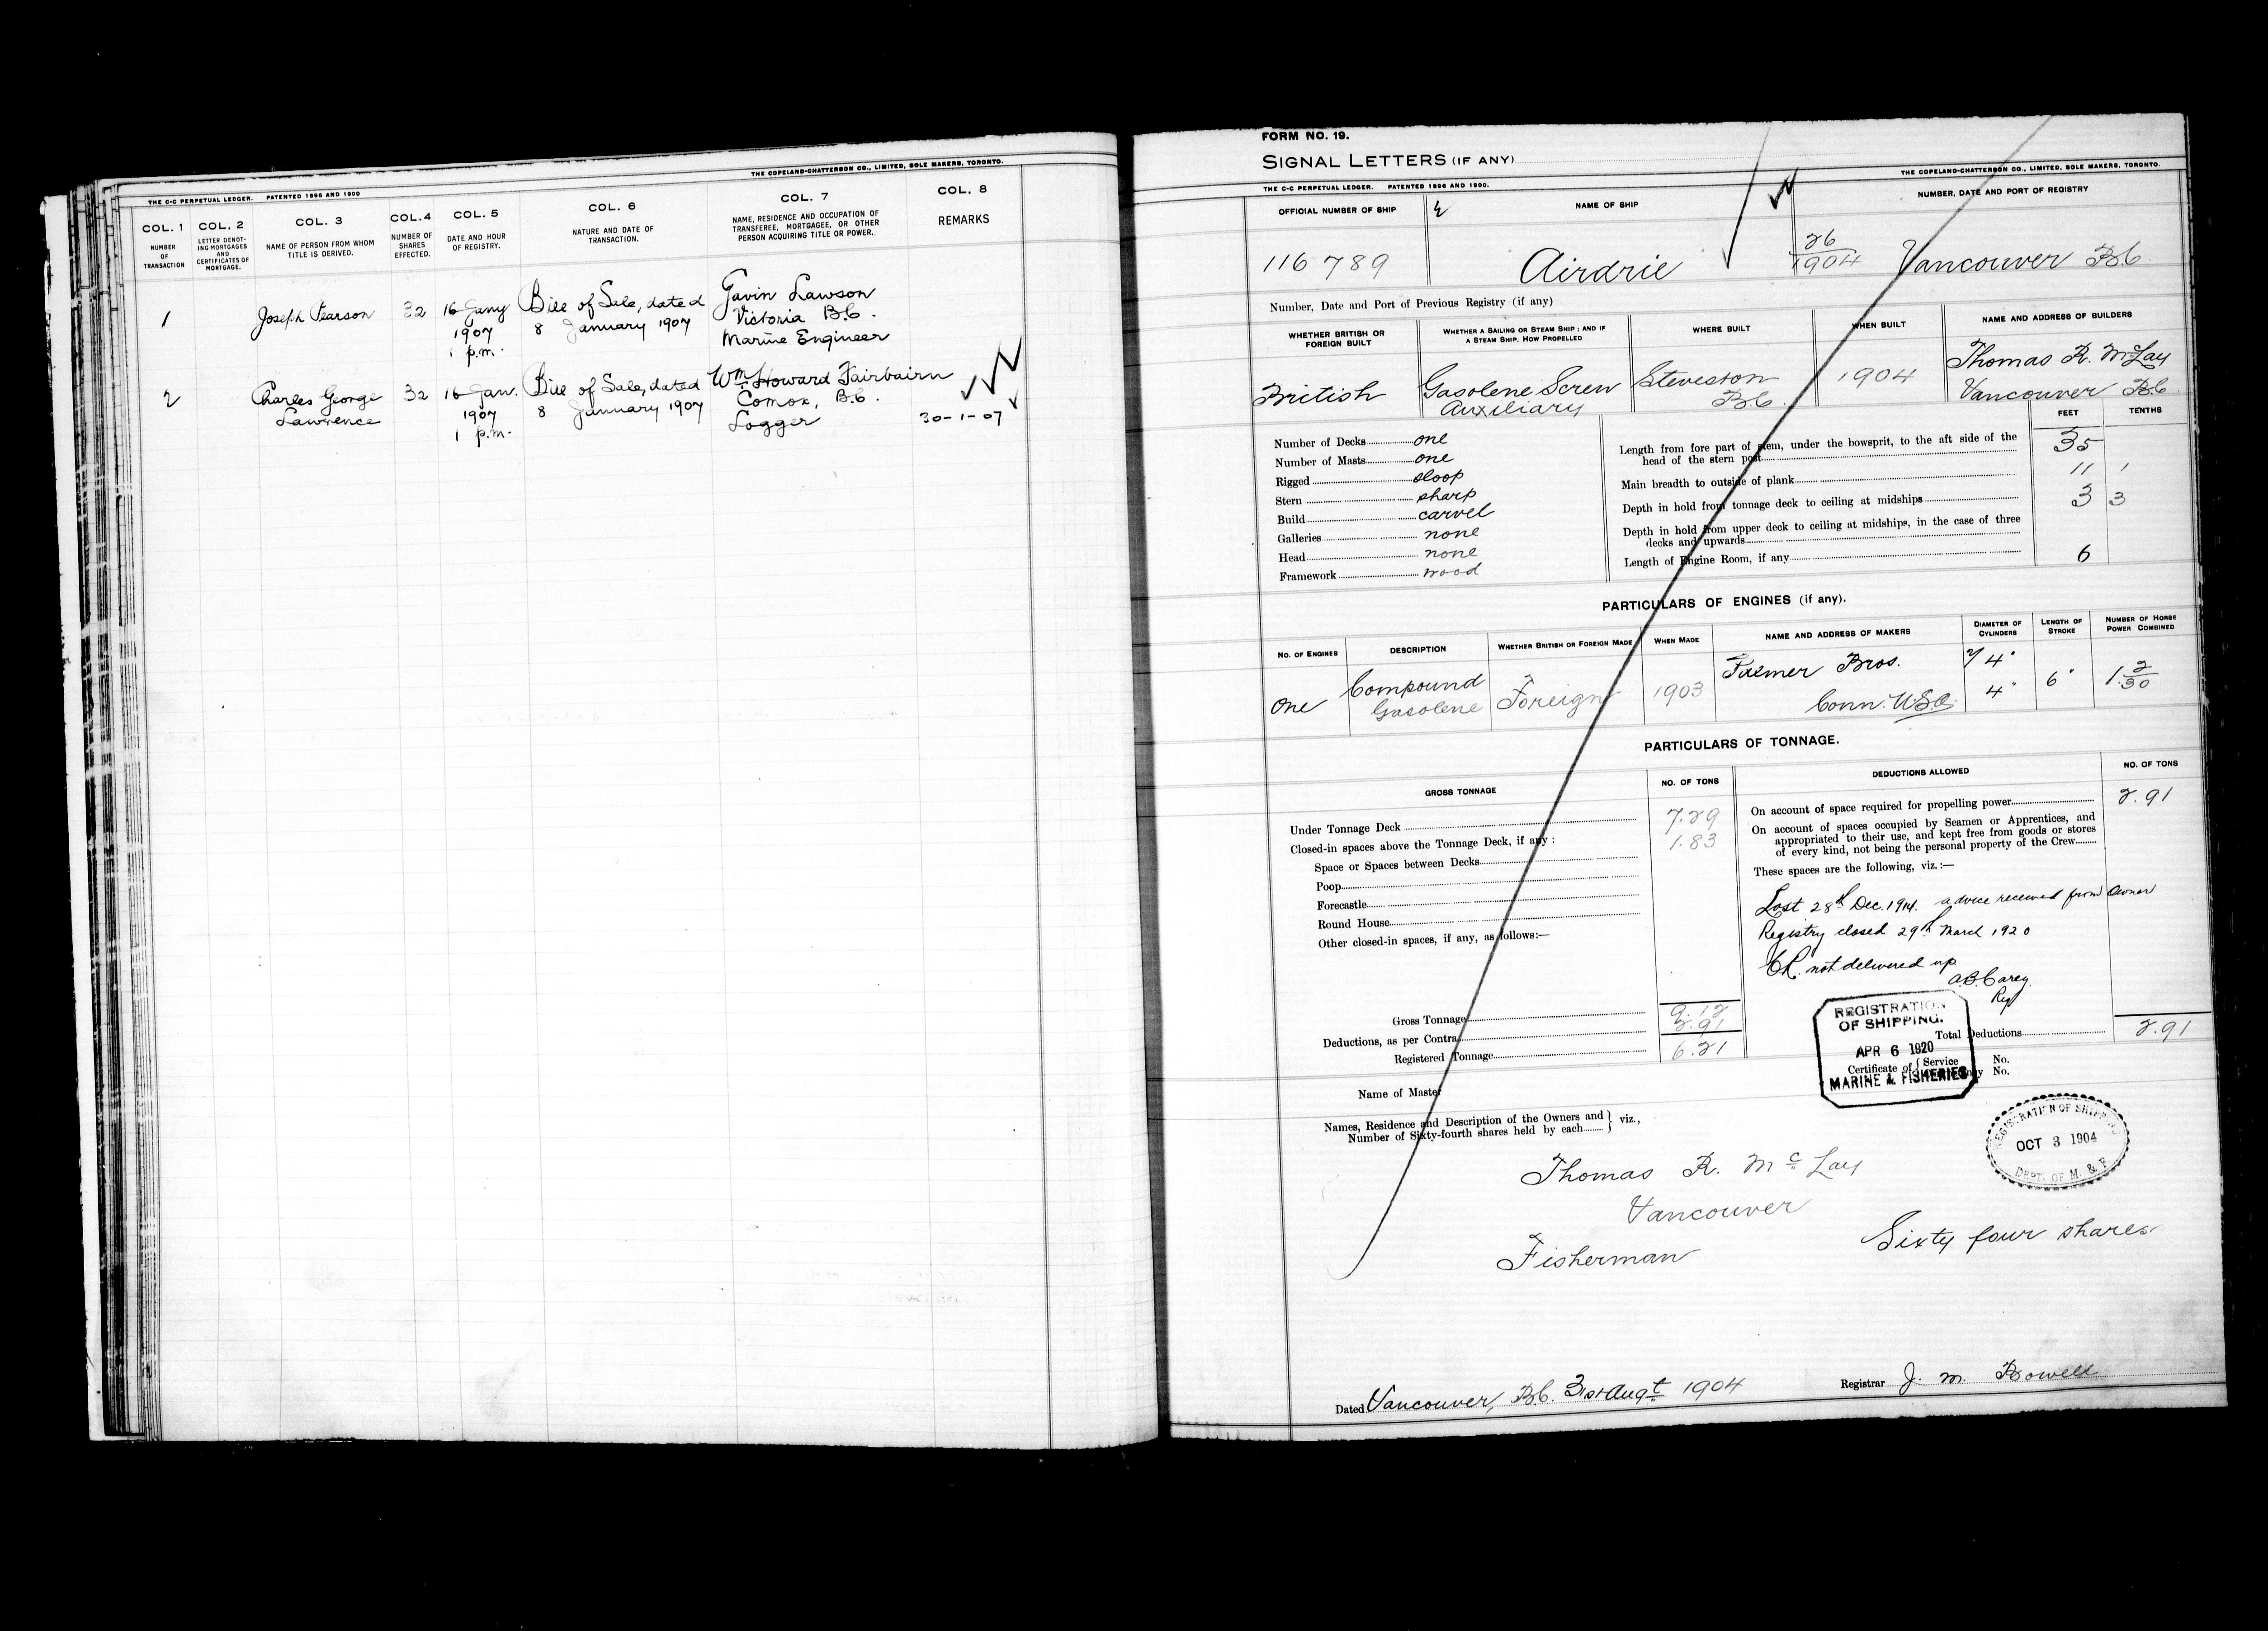 THE C-C PERPETUAL LEDGER. PATENTED 1896 AND 1900
THE COPELAND-CHATTERSON CO., LIMITED, SOLE MAKERS, TORONTO.
COL. 1 COL. 2 COL. 3 COL. 4 COL. 5 COL. 6 COL. 7 COL. 8
NUMBER OF TRANSACTION
LETTER DENOTING MORTGAGES AND CERTIFICATES OF MORTGAGE.
NAME OF PERSON FROM WHOM TITLE IS DERIVED.
NUMBER OF SHARES EFFECTED.
DATE AND HOUR OF REGISTRY.
NATURE AND DATE OF TRANSACTION.
NAME, RESIDENCE AND OCCUPATION OF TRANSFEREE, MORTGAGEE, OR OTHER PERSON ACQUIRING TITLE OR POWER.
REMARKS
1 Joseph Pearson 32 16 Jany 1907 1 p.m. Bill of Sale, dated 8 January 1907 Gavin Lawson Victoria B.C. Marine Engineer
2 Charles George Lawrence 32 16 Jan. 1907 1 p.m. Bill of Sale, dated 8 January 1907 Wm. Howard Fairbairn Comox, B.C. Logger 30-1-07
FORM NO. 19.
SIGNAL LETTERS (IF ANY)
THE C-C PERPETUAL LEDGER. PATENTED 1896 AND 1900.
THE COPELAND-CHATTERSON CO., LIMITED, SOLE MAKERS, TORONTO.
OFFICIAL NUMBER OF SHIP NAME OF SHIP NUMBER, DATE AND PORT OF REGISTRY
116789 Airdrie 26/1904 Vancouver B.C.
Number, Date and Port of Previous Registry (if any)
WHETHER BRITISH OR FOREIGN BUILT
WHETHER A SAILING OR STEAM SHIP; AND IF A STEAM SHIP, HOW PROPELLED
WHERE BUILT
WHEN BUILT
NAME AND ADDRESS OF BUILDERS
British Gasolene Screw Auxiliary Steveston B.C. 1904 Thomas R. McLay Vancouver B.C.
FEET TENTHS
Number of Decks one
Number of Masts one
Rigged sloop
Stern sharp
Build carvel
Galleries none
Head none
Framework wood
Length from fore part of stem, under the bowsprit, to the aft side of the
head of the stern post 35
Main breadth to outside of plank 11 1
Depth in hold from tonnage deck to ceiling at midships 3 3
Depth in hold from upper deck to ceiling at midships, in the case of three
decks and upwards
Length of Engine Room, if any 6
PARTICULARS OF ENGINES (if any).
NO. OF ENGINES DESCRIPTION WHETHER BRITISH OR FOREIGN MADE WHEN MADE NAME AND ADDRESS OF MAKERS DIAMETER OF CYLINDERS LENGTH OF STROKE NUMBER OF HORSE POWER COMBINED
One Compound Gasolene Foreign 1903 Palmer Bros. Conn. U.S.A. 4" 4" 6" 1 2/30
PARTICULARS OF TONNAGE.
GROSS TONNAGE NO. OF TONS
Under Tonnage Deck 7.29
Closed-in spaces above the Tonnage Deck, if any: 1.83
Space or Spaces between Decks
Poop
Forecastle
Round House
Other closed-in spaces, if any, as follows:—
Gross Tonnage 9.12
Deductions, as per Contra 2.91
Registered Tonnage 6.21
DEDUCTIONS ALLOWED NO. OF TONS
On account of space required for propelling power 2.91
On account of spaces occupied by Seamen or Apprentices, and
appropriated to their use, and kept free from goods or stores
of every kind, not being the personal property of the Crew
These spaces are the following, viz.:—
Lost 28th Dec. 1914. advice received from owner
Registry closed 29th March 1920
C.R. not delivered up
A.B. Carey
Reg
REGISTRATION
OF SHIPPING.
APR 6 1920
MARINE & FISHERIES
Total Deductions 2.91
Certificate of Service No.
No.
Name of Master
REGISTRATION OF SHIPPING
OCT 3 1904
DEPT. OF M. & F.
Names, Residence and Description of the Owners and
Number of Sixty-fourth shares held by each } viz.,
Thomas R. McLay
Vancouver
Fisherman Sixty four shares
Dated Vancouver, B.C. 31st Augt 1904
Registrar J. M. Bowell